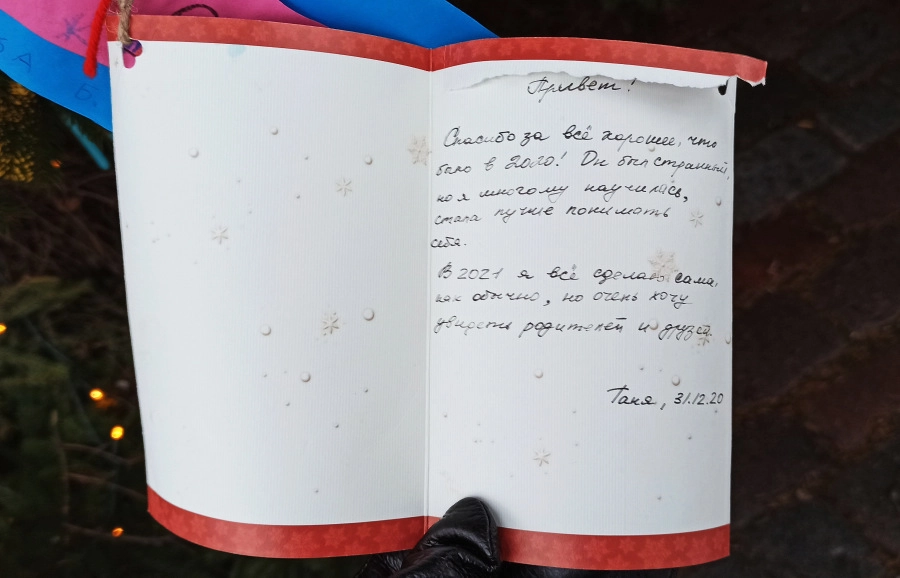 Привет!
Спасибо за всё хорошее, что
было в 2020! Он был странный,
но я многому научилась,
стала лучше понимать
себя.
В 2021 я всё сделаю сама,
как обычно, но очень хочу
увидеть родителей и друзей.
Таня, 31.12.20